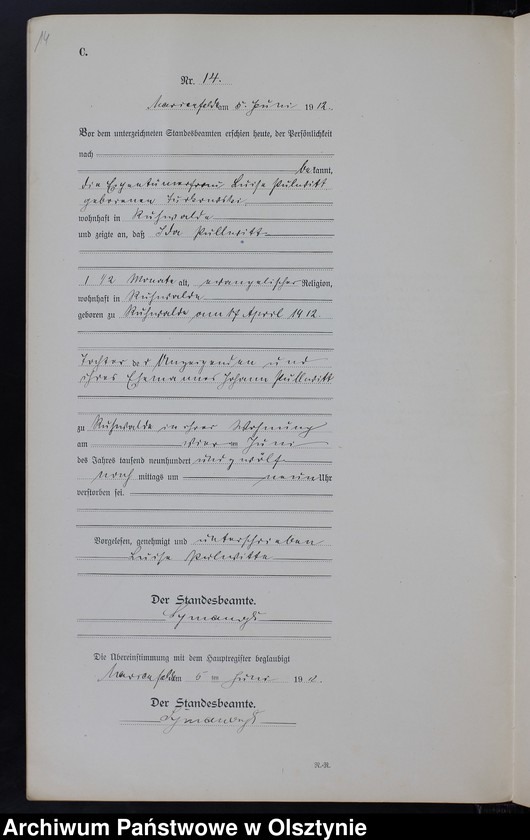 14
C.
Nr. 14.
Marienfelde am 5. Juni 1912.
Vor dem unterzeichneten Standesbeamten erschien heute, der Persönlichkeit
nach
bekannt,
die Eigentümerfrau Luise Pulwitt
geborenen
wohnhaft in Ruhwalde
und zeigte an, daß Ida Pullwitt
1 1/2 Monate alt, evangelischer Religion,
wohnhaft in Ruhwalde
geboren zu Ruhwalde am 17 April 1912
Tochter der Anzeigenden und
ihres Ehemannes Johann Pullwitt
zu Ruhwalde in ihrer Wohnung
am vier ten Juni
des Jahres tausend neunhundert und zwölf
nach mittags um neun Uhr
verstorben sei.
Vorgelesen, genehmigt und unterschrieben
Luise Pulwitte
Der Standesbeamte.
Die Übereinstimmung mit dem Hauptregister beglaubigt
Marienfelde am 5 ten Juni 1912.
Der Standesbeamte.
R.-R.
Archiwum Państwowe w Olsztynie